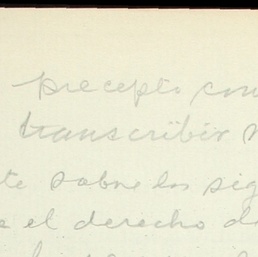 precepto con
transcribir
te sobre los sig
el derecho d